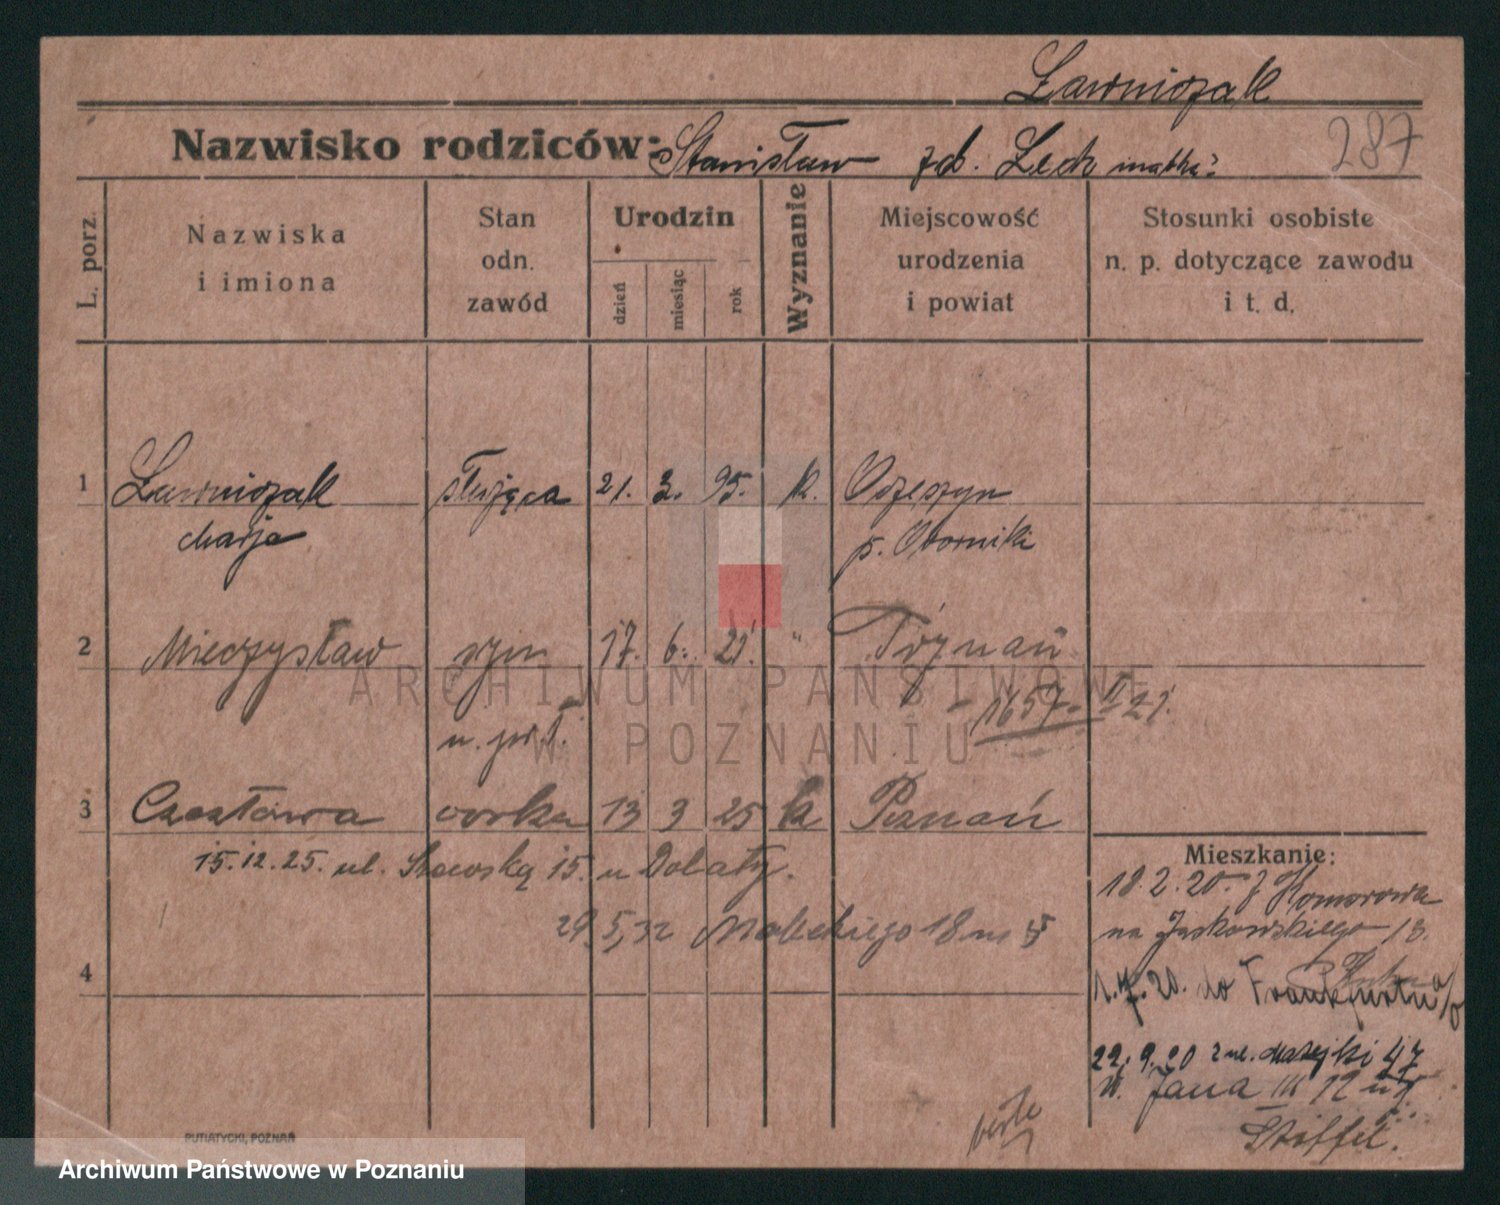 Ławniczak
Nazwisko rodziców: Stanisław zd. Lech matka:
287
L. porz.
Nazwiska
i imiona
Stan
odn.
zawód
Urodzin
dzień
miesiąc
rok
Wyznanie
Miejscowość
urodzenia
i powiat
Stosunki osobiste
n. p. dotyczące zawodu
i t. d.
1 Ławniczak służąca 21. 3. 95. k.
Marja p. Oborniki
2 Mieczysław syn 17. 6. 21. " Poznań
1657 II 21.
3 Czesława corka 13 3 25 k Poznań
15.12.25. ul. 15. u
29.5.32 Małeckiego 18 m 5
4
Mieszkanie:
18.2.20. z Komorowa
na Jackowskiego 18.
1.7.20. do Frankfurtu a/O
22.9.20 z ul. Matejki 47
Jana III 12 u
verte
PUTIATYCKI, POZNAŃ
ARCHIWUM PAŃSTWOWE
W POZNANIU
Archiwum Państwowe w Poznaniu